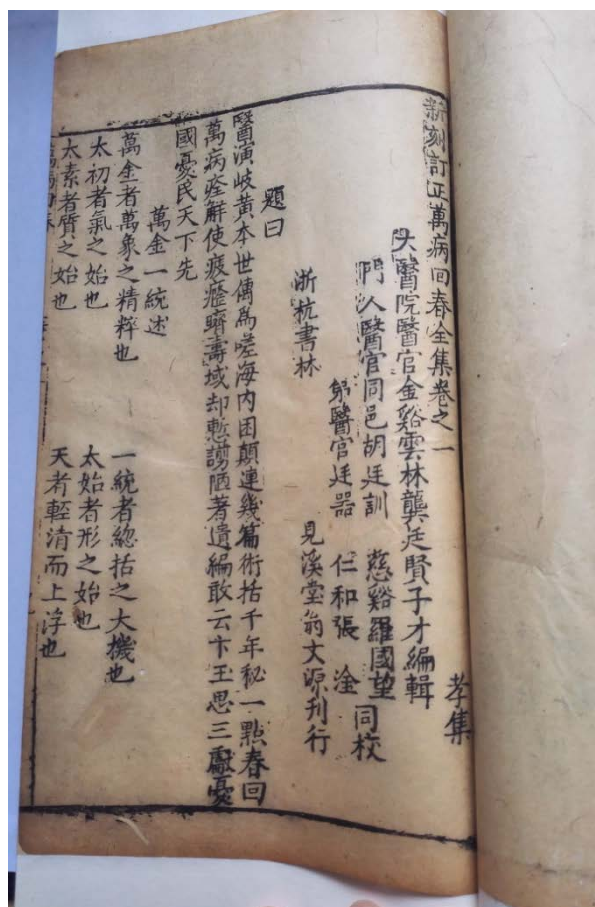 新刻訂正萬病回春全集卷之一 孝集
太醫院醫官金谿雲林龔廷賢子才編輯
門人醫官同邑胡廷訓 慈谿羅國望 同校
弟醫官廷器 仁和張淦
浙杭書林 見溪堂翁文源刊行
題曰
醫演岐黄本世傳爲嗟海内困顛連幾篇術括千年秘一點春回
萬病痊解使疲癃躋壽域却慙謭陋著遺編敢云卞玉思三獻憂
國憂民天下先
萬金一統述
萬金者萬象之精粹也 一統者總括之大機也
太初者氣之始也 太始者形之始也
太素者質之始也 天者輕清而上浮也